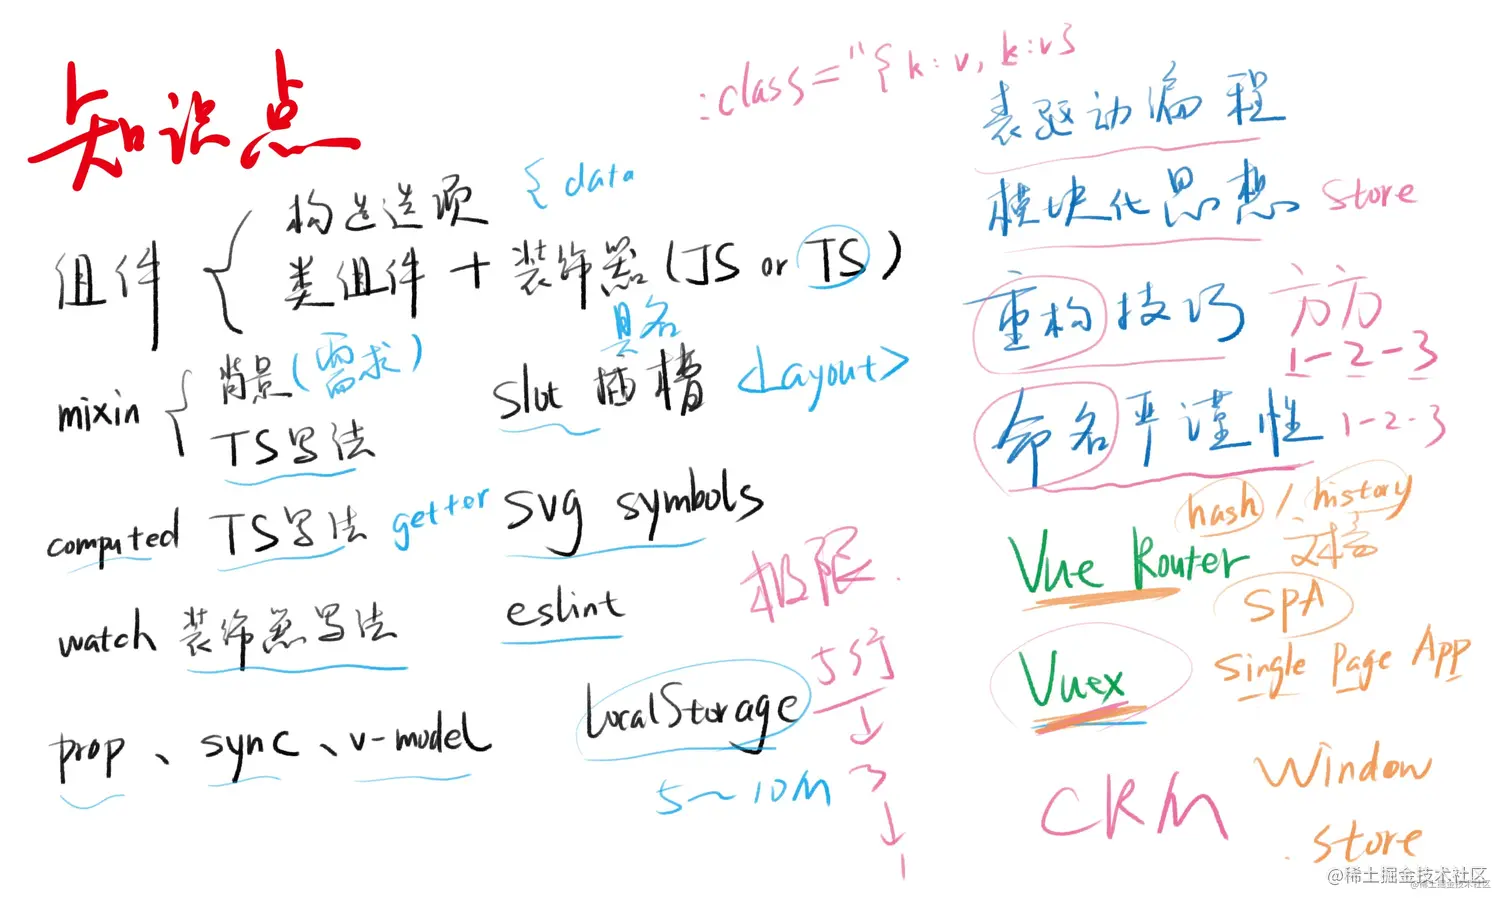 知识点
:class="{k:v, k:v}
组件
构造选项 { data
类组件 + 装饰器 (JS or TS)
mixin
背景(需求)
TS写法
computed TS写法 getter
watch 装饰器写法
prop、sync、v-model
具名
slot 插槽 <Layout>
svg symbols
eslint
LocalStorage
5~10M
权限
5行
↓
3
↓
1
表驱动编程
模块化思想 store
重构技巧 方方
1-2-3
命名严谨性 1-2-3
hash / history
Vue Router
SPA
Vuex Single Page App
CRM
Window
.store
@稀土掘金技术社区
@稀土掘金技术社区